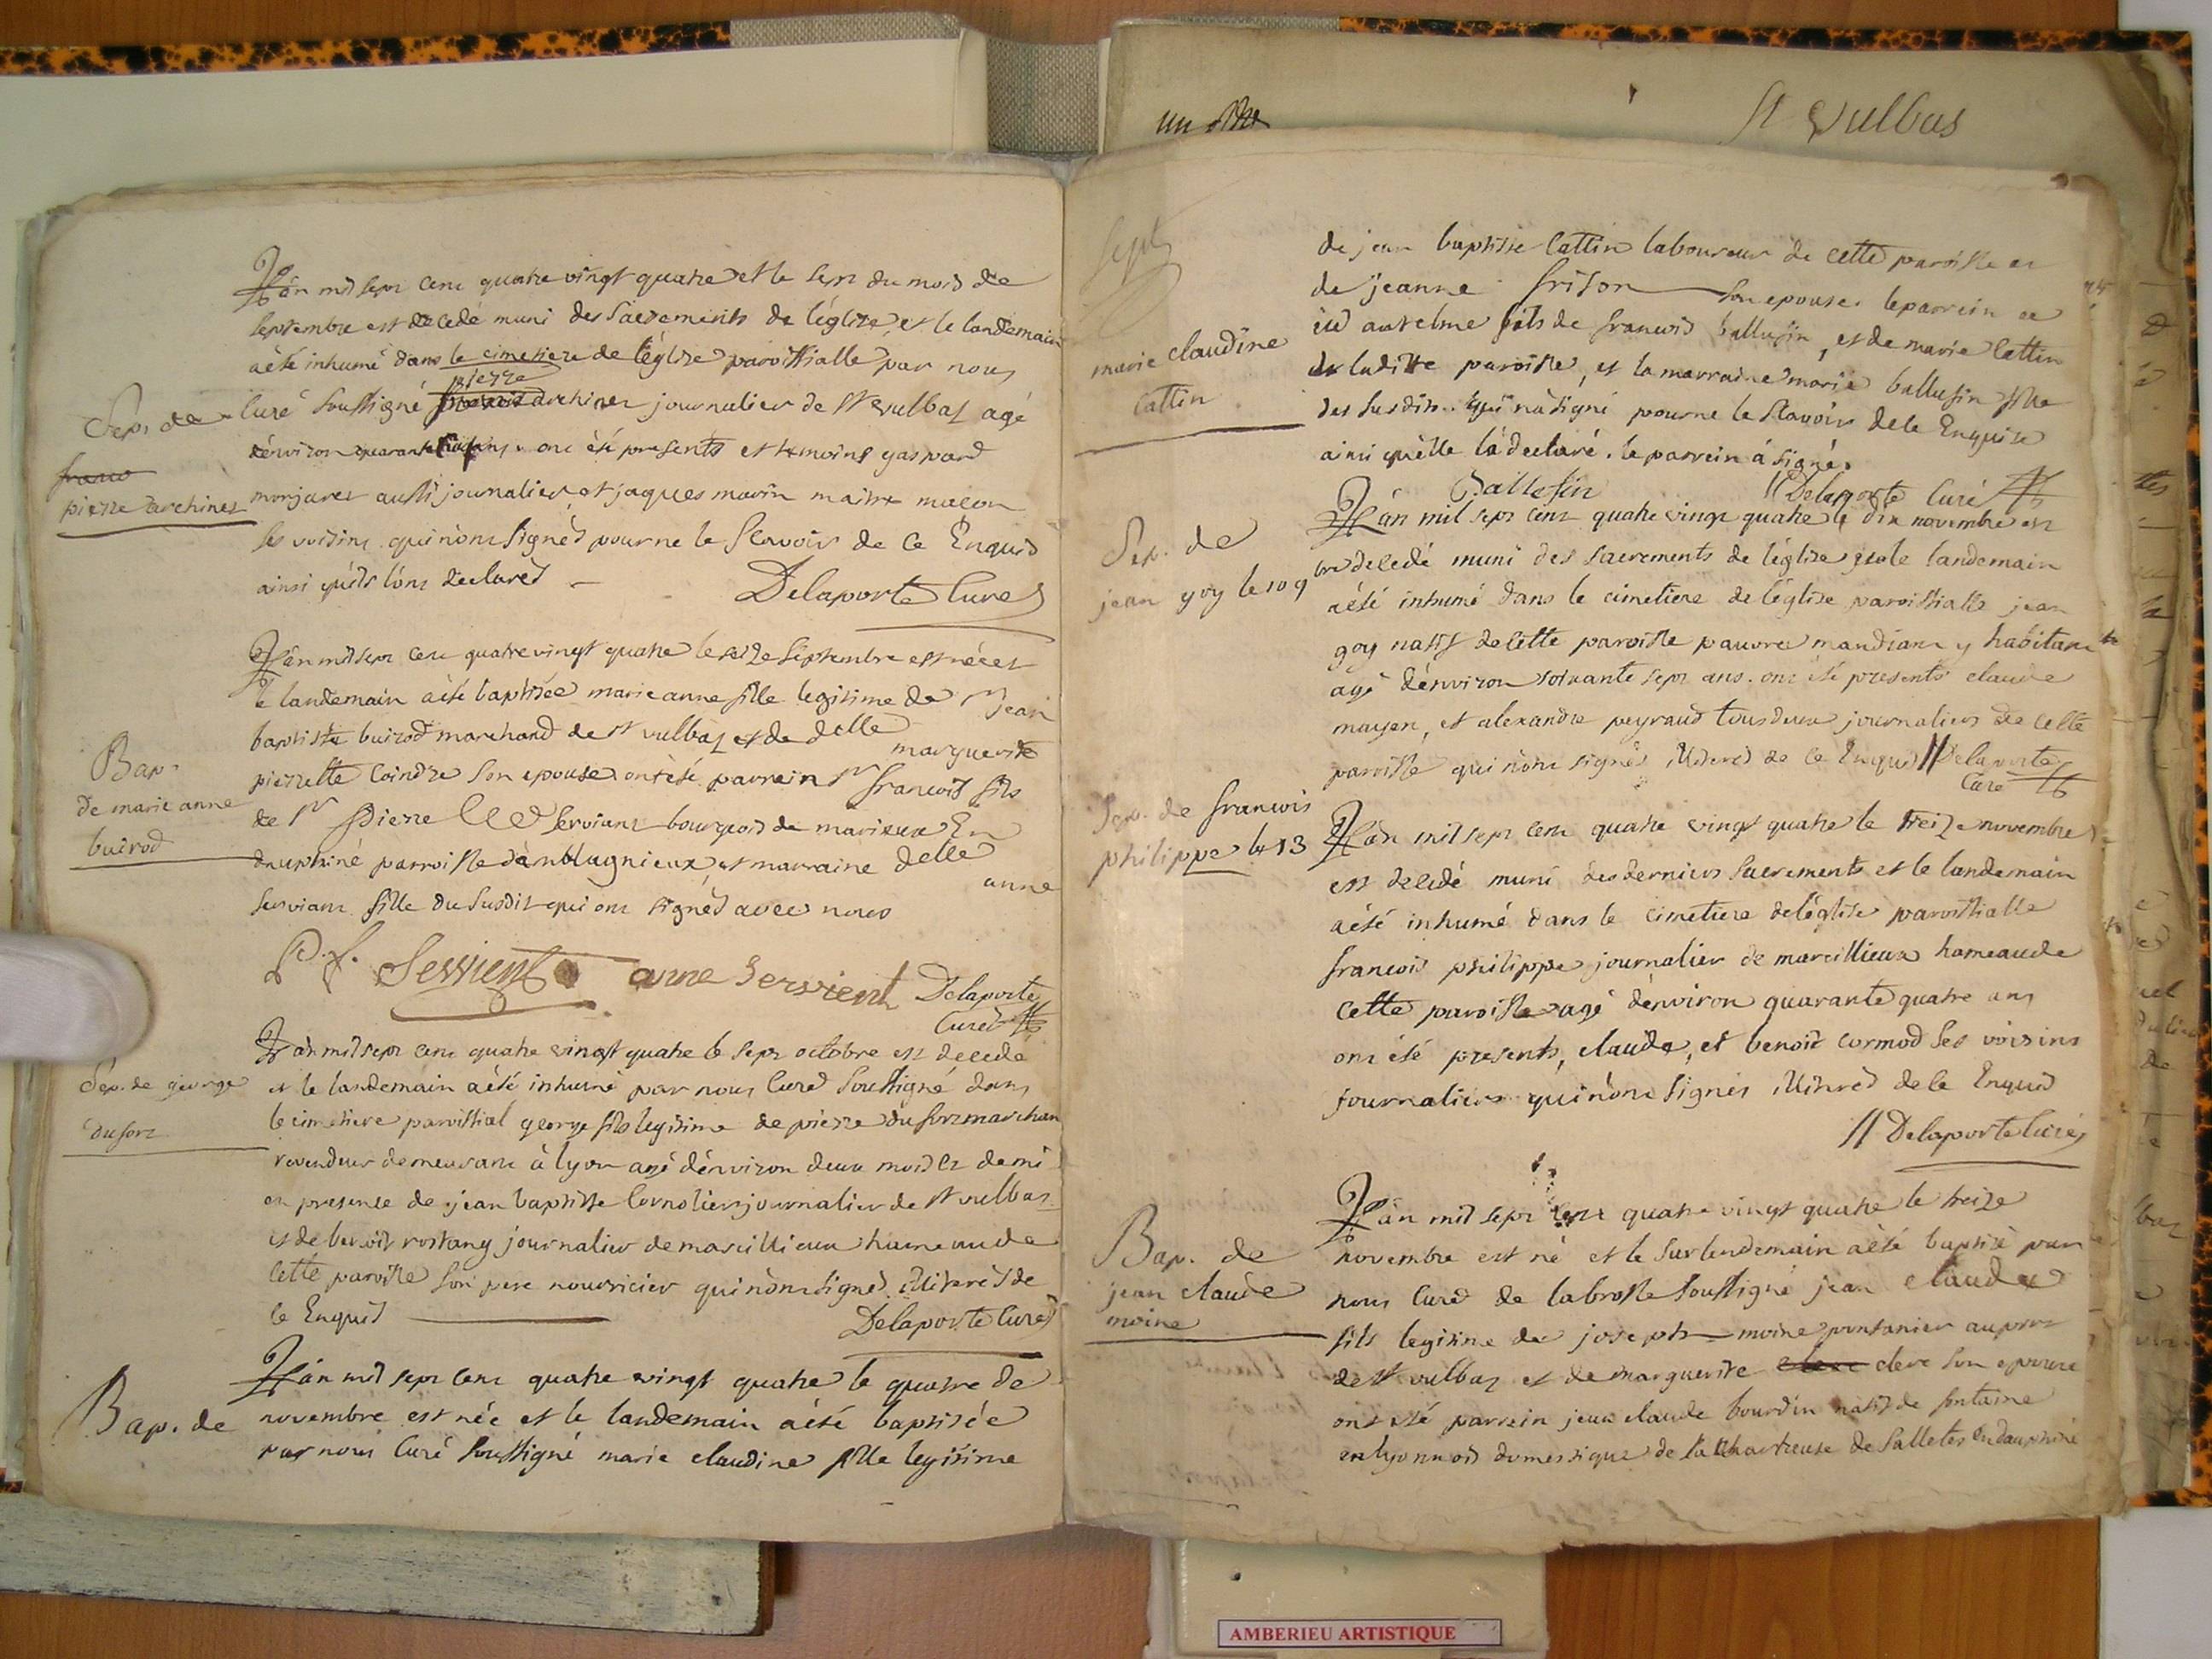 St Vulbas
L'an mil sept cent quatre vingt quatre et le sept du mois de
septembre est decedé muni des Sacrements de l'église, et le landemain
a été inhumé dans le cimetiere de l'église paroissialle par nous
pierre
Sep. de
Curé soussigné archiner journalier de st vulbas agé
d'environ quarante ans. ont été presents et temoins gaspard
franco
pierre archiner
monjaret aussi journalier et jaques marin maitre maçon
ses voisins qui n'ont signés pour ne le sçavoir de ce Enquis
ainsi qu'ils l'ont declarés
Delaporte Curé
L'an mil sept cent quatre vingt quatre le seize septembre est née et
le landemain a été baptisée marie anne fille legitime de sr jean
baptiste buirod marchand de st vulbas et de delle marguerite
Bap.
de marie anne
buirod
pierrette Coindre son epouse ont été parrein sr françois fils
de sr pierre Serviant bourgeois de marieux En
dauphiné parroisse d'amblagnieux, et marraine delle anne
serviant fille du susdit qui ont signés avec nous
P. f. Servient anne Servient Delaporte
Curé
L'an mil sept cent quatre vingt quatre le sept octobre est decedé
Sep. de george
dufort
et le landemain a été inhumé par nous Curé soussigné dans
le cimetiere paroissial george fils legitime de pierre dufort marchan
revendeur demeurant à lyon agé d'environ deux mois et demi
en presence de jean baptiste Cornolier journalier de st vulbas
et de benoit rostang journalier de marcillieux hameau de
cette paroisse son pere nourricier qui n'ont signés illiterés de
ce Enquis
Delaporte Curé
L'an mil sept cent quatre vingt quatre le quatre de
Bap. de
novembre est née et le landemain a été baptisée
par nous Curé soussigné marie claudine fille legitime
sept
marie claudine
Cattin
de jean baptiste Cattin laboureur de cette paroisse et
de jeanne frison son epouse. le parrein a
été antelme fils de françois ballufin, et de marie Cattin
de laditte paroisse, et la marraine marie ballufin fille
des susdits. qui n'a signé pour ne le sçavoir de ce Enquise
ainsi qu'elle l'a declaré. le parrein a signé.
Ballefin Delaporte Curé
L'an mil sept cent quatre vingt quatre le dix novembre est
Sep. de
jean goy le 10 9
decedé muni des sacrements de l'église et le landemain
a été inhumé dans le cimetiere de l'église paroissialle jean
goy natif de cette paroisse pauvre mandiant y habitant
agé d'environ soixante sept ans. ont été presents claude
mayen, et alexandre peyraud tous deux journaliers de cette
paroisse qui n'ont signés illiterés de ce Enquis Delaporte
Curé
Sep. de françois
philippe le 13
L'an mil sept cent quatre vingt quatre le treize novembre
est decedé muni des derniers sacrements et le landemain
a été inhumé dans le cimetiere de l'église paroissialle
françois philippe journalier de marcillieux hameau de
cette paroisse agé d'environ quarante quatre ans
ont été presents, claude, et benoit cormod ses voisins
journaliers qui n'ont signés illiterés de ce Enquis
Delaporte Curé
L'an mil sept cent quatre vingt quatre le treize
Bap. de
jean claude
moine
novembre est né et le surlendemain a été baptisé par
nous Curé de labrosse soussigné jean claude
fils legitime de joseph moine pontanier au port
de st vulbas et de marguerite clere son epouse
ont été parrein jean claude bourdin natif de fontaine
en lyonnois domestique de la Chartreuse de Salletes En dauphiné
AMBERIEU ARTISTIQUE